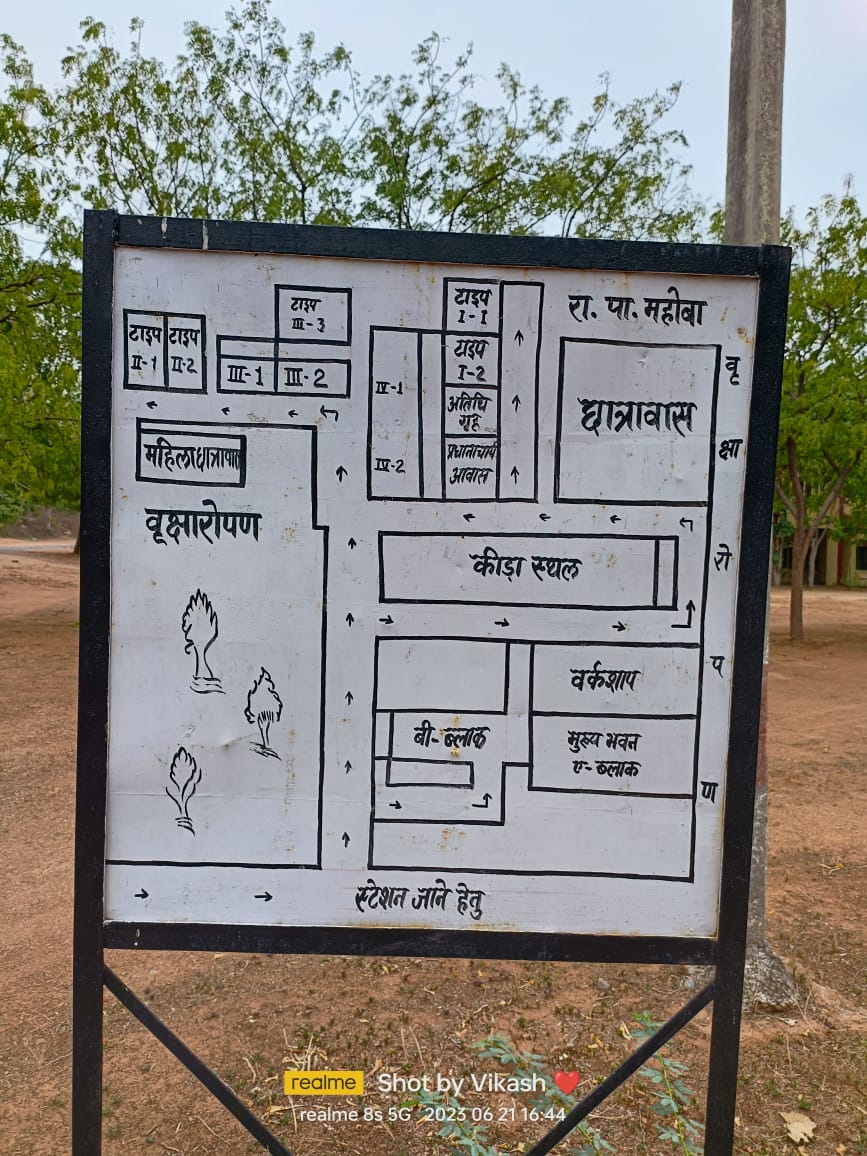 रा. पा. महोबा
टाइप
II-1
टाइप
II-2
टाइप
III-3
III-1
III-2
IV-1
IV-2
टाइप
I-1
टाइप
I-2
अतिथि
गृह
प्रधानाचार्य
आवास
छात्रावास
वृ
क्षा
रो
प
ण
महिला छात्रावास
वृक्षारोपण
कीड़ा स्थल
वर्कशाप
बी-ब्लाक
मुख्य भवन
ए-ब्लाक
स्टेशन जाने हेतु
realme Shot by Vikash ❤️
realme 8s 5G 2023 06 21 16:44